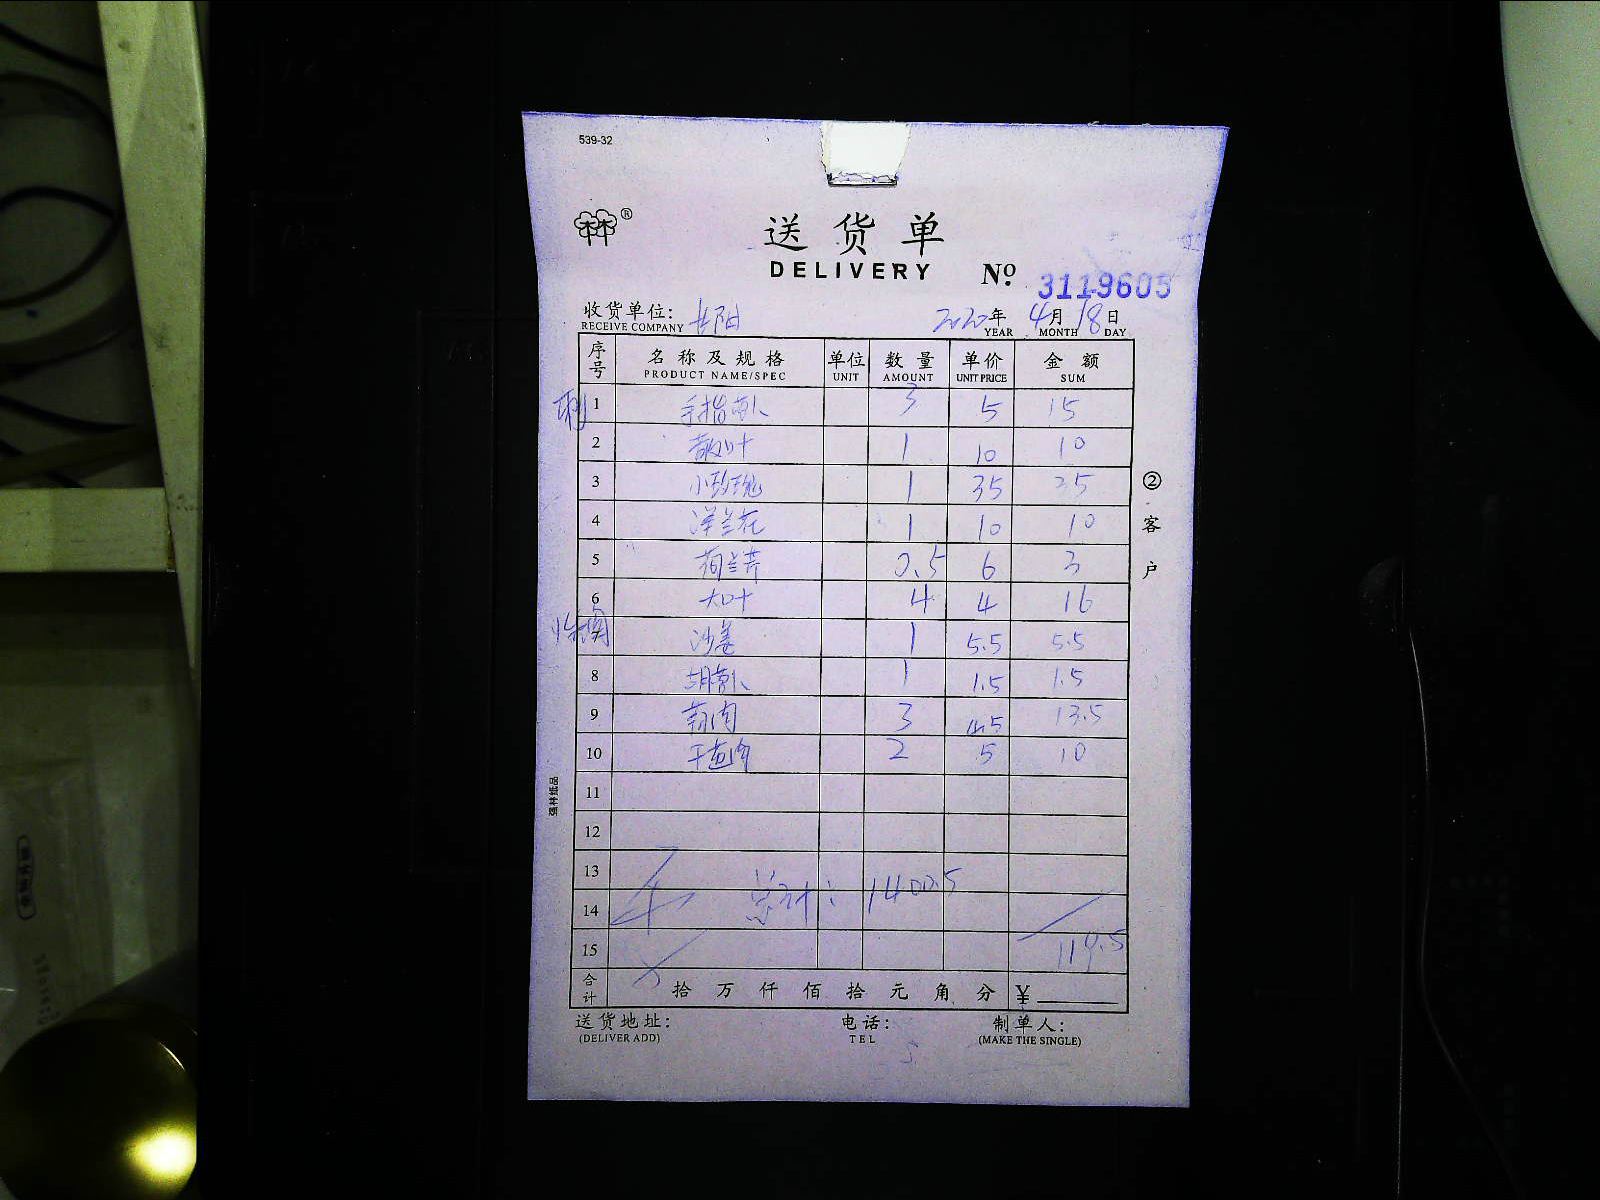 539-32
林林®
送货单
DELIVERY № 3119605
收货单位: 长阳 2020年 4月 18日
RECEIVE COMPANY YEAR MONTH DAY
序号 名称及规格 单位 数量 单价 金额
PRODUCT NAME/SPEC UNIT AMOUNT UNIT PRICE SUM
1 手指萝卜 3 5 15
2 散叶 1 10 10
3 小玫瑰 1 35 35
4 洋兰花 1 10 10
5 荷兰芹 0.5 6 3
6 大叶 4 4 16
沙姜 1 5.5 5.5
8 胡萝卜 1 1.5 1.5
9 3 4.5 13.5
10 干葱肉 2 5 10
11
12
13
总计: 1400.5
14
15 119.5
合计 拾 万 仟 佰 拾 元 角 分 ¥
送货地址: 电话: 制单人:
(DELIVER ADD) TEL (MAKE THE SINGLE)
②客户
强林纸品